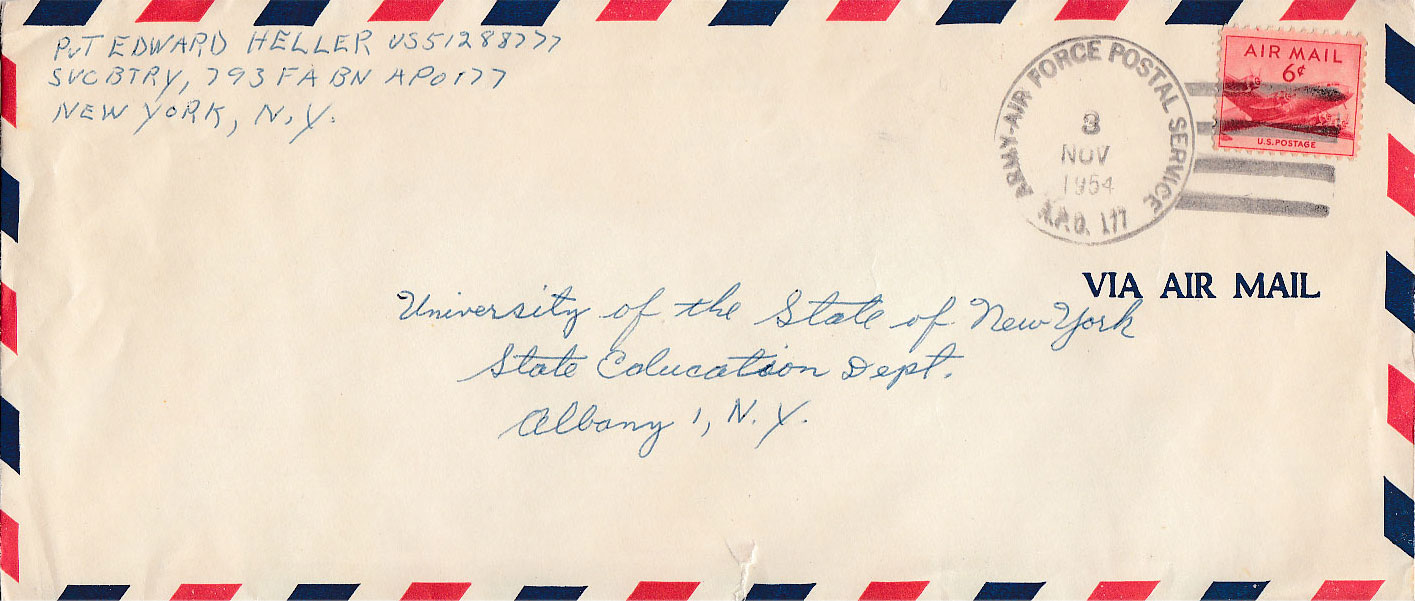 PvT EDWARD HELLER US51288777
SVC BTRY, 793 FA BN APO 177
NEW YORK, N.Y.
ARMY-AIR FORCE POSTAL SERVICE
3
NOV
1954
A.P.O. 177
AIR MAIL
6¢
U.S. POSTAGE
VIA AIR MAIL
University of the State of New York
State Education Dept.
Albany 1, N.Y.